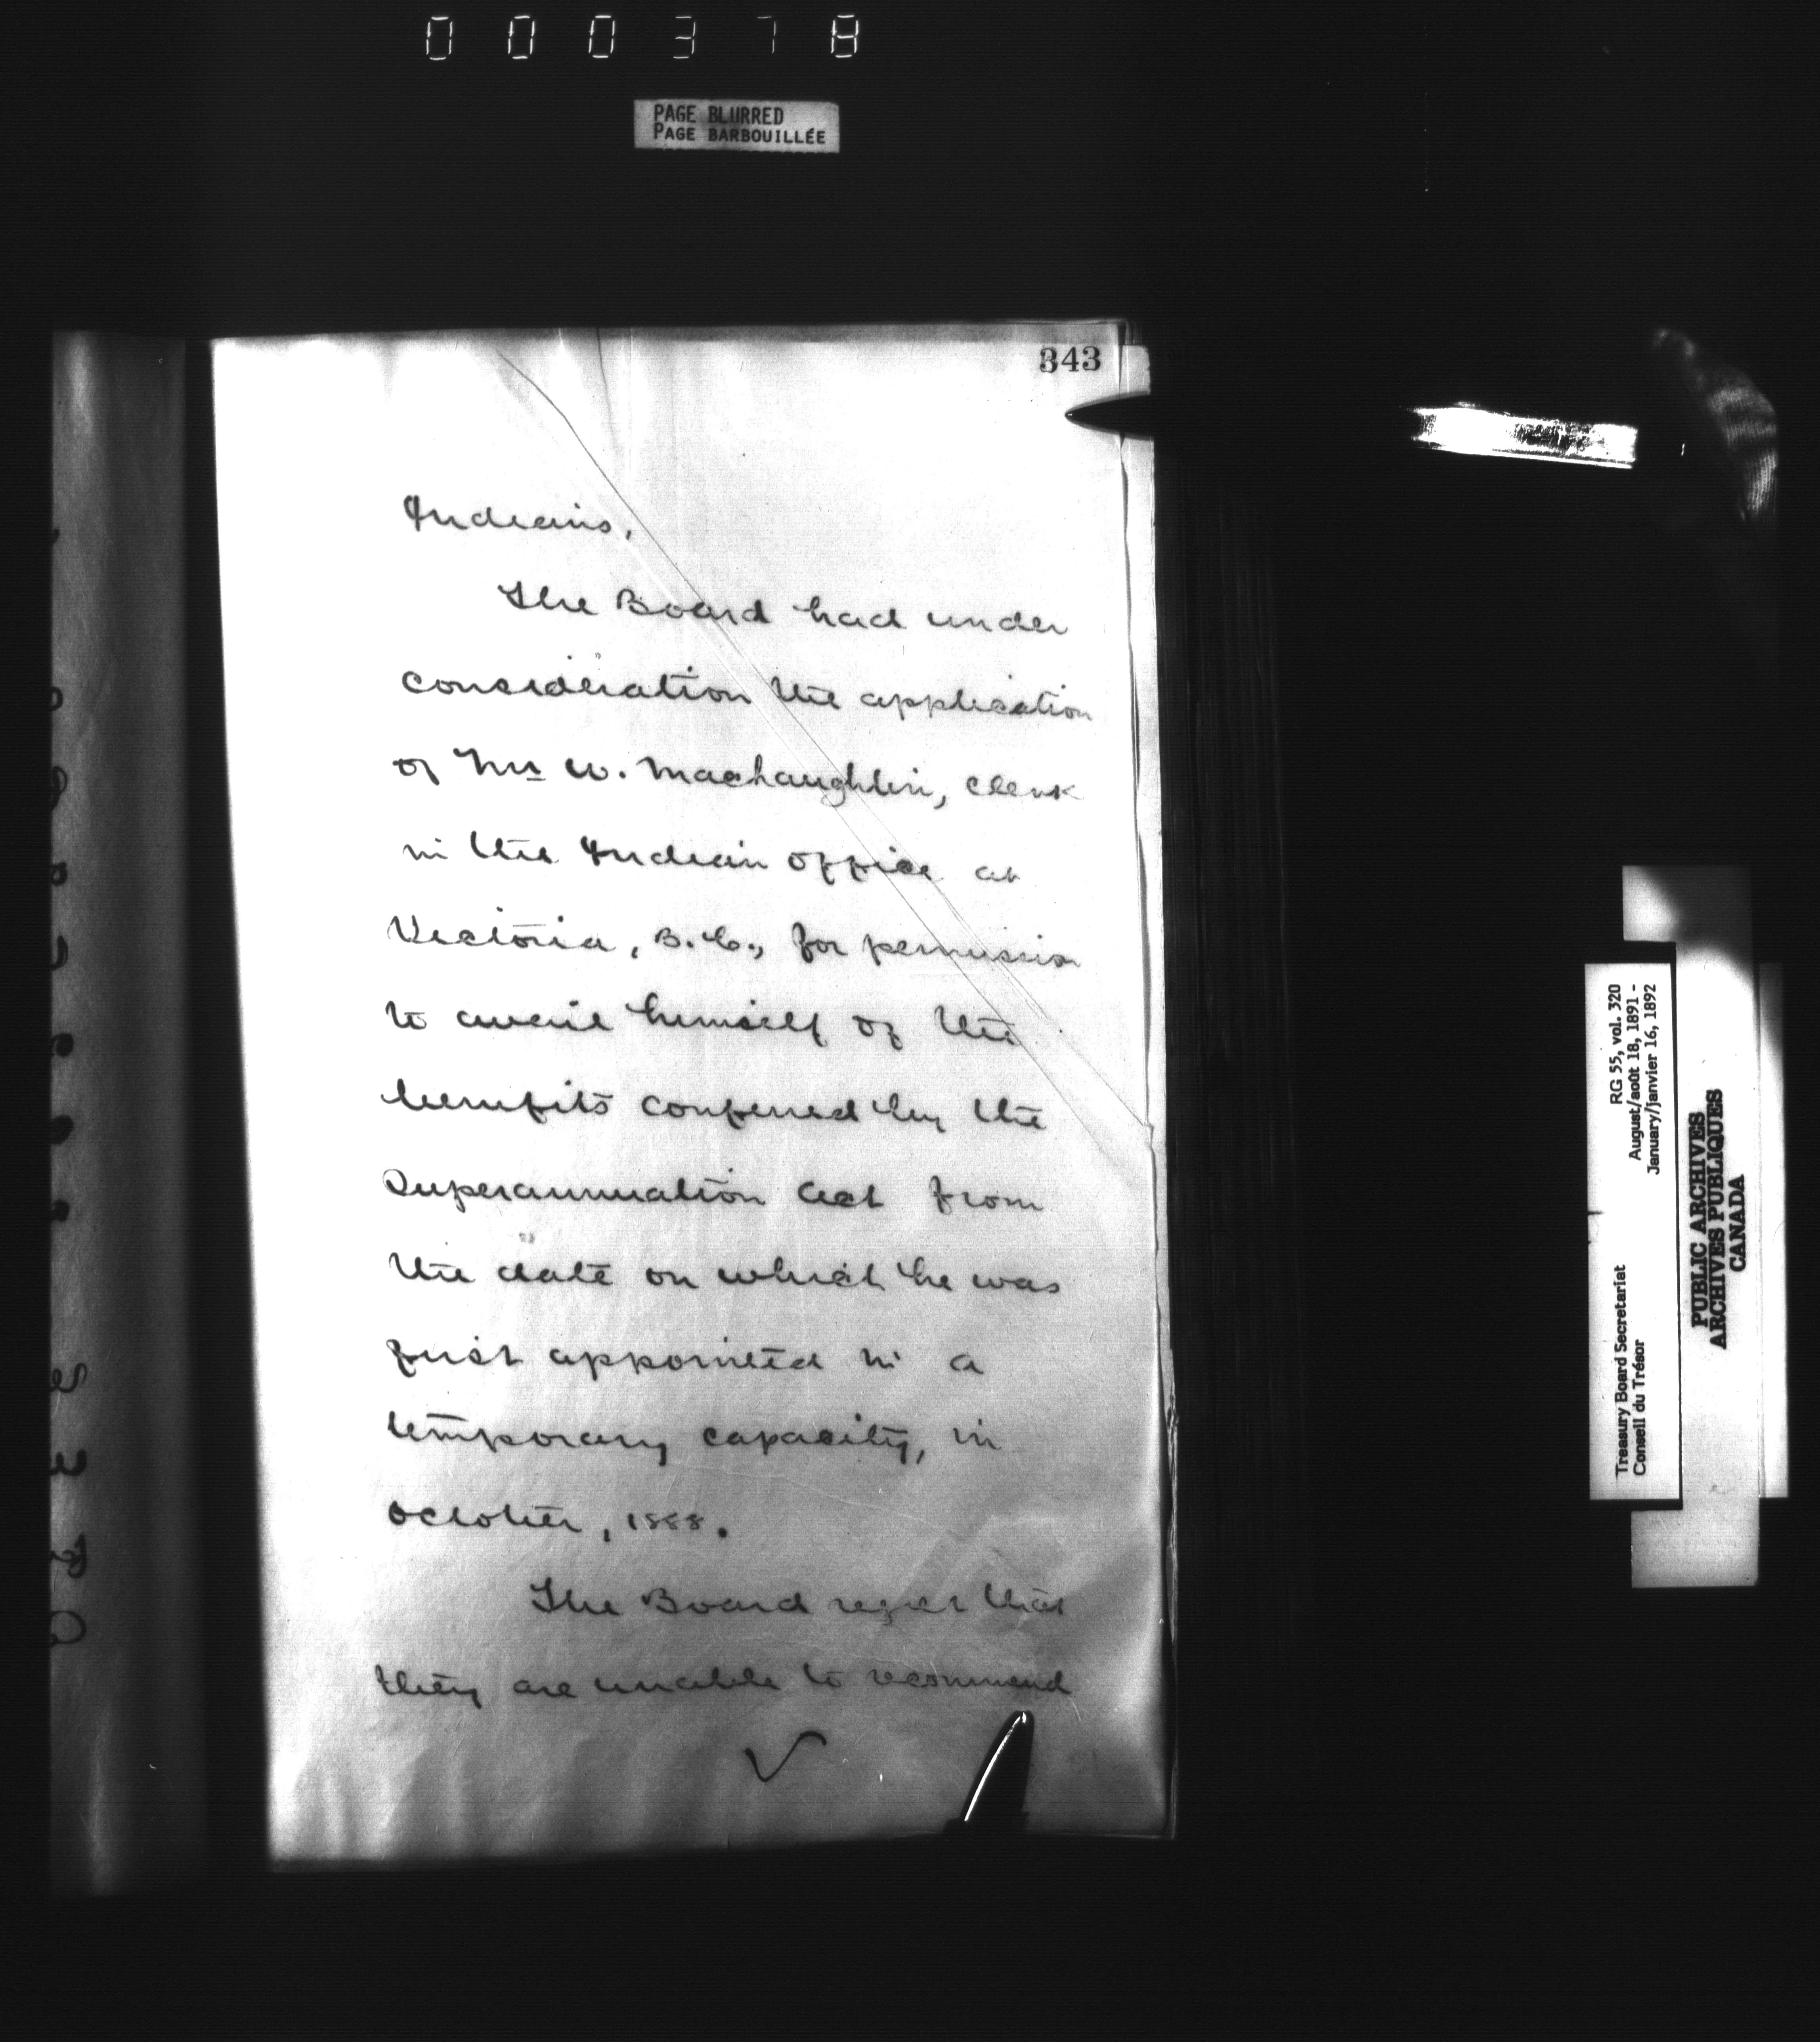 000378
PAGE BLURRED
PAGE BARBOUILLÉE
343
Indians,
The Board had under
consideration the application
of Mr W. MacLaughlin, clerk
in the Indian office at
Victoria, B.C., for permission
to avail himself of the
benefits conferred by the
Superannuation Act from
the date on which he was
first appointed in a
temporary capacity, in
October, 1888.
The Board regret that
they are unable to recommend
RG 55, vol. 320
August/août 18, 1891 -
January/janvier 16, 1892
Treasury Board Secretariat
Conseil du Trésor
PUBLIC ARCHIVES
ARCHIVES PUBLIQUES
CANADA